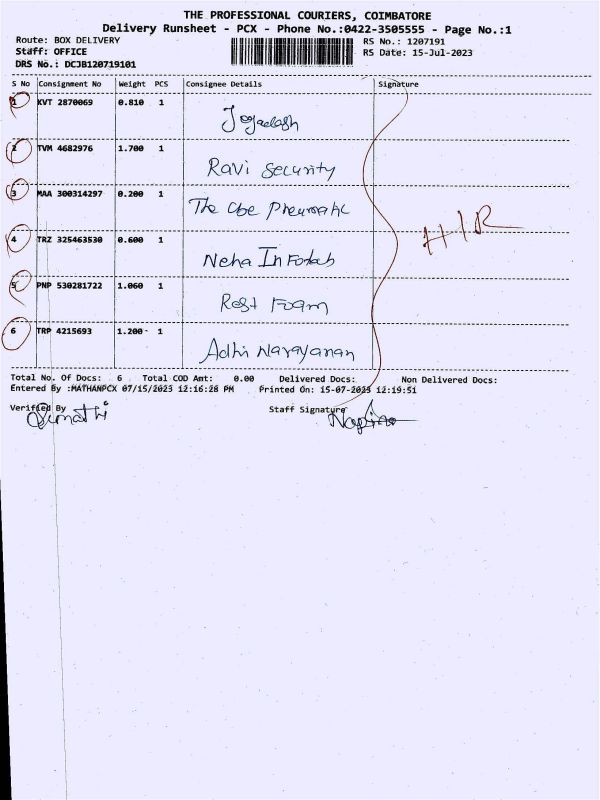 THE PROFESSIONAL COURIERS, COIMBATORE
Delivery Runsheet - PCX - Phone No.:0422-3505555 - Page No.:1
Route: BOX DELIVERY RS No.: 1207191
Staff: OFFICE RS Date: 15-Jul-2023
DRS No.: DCJB120719101
S No Consignment No Weight PCS Consignee Details Signature
1 KVT 2870069 0.810 1
2 TVM 4682976 1.700 1 Ravi Security
3 MAA 300314297 0.200 1 The Cbe Pneumatic
4 TRZ 325463530 0.600 1 Neha Infotab H/R
5 PNP 530281722 1.060 1 Rest Foam
6 TRP 4215693 1.200 1 Adhi Narayanan
Total No. Of Docs: 6 Total COD Amt: 0.00 Delivered Docs: Non Delivered Docs:
Entered By :MATHANPCX 07/15/2023 12:16:28 PM Printed On: 15-07-2023 12:19:51
Verified By Staff Signature